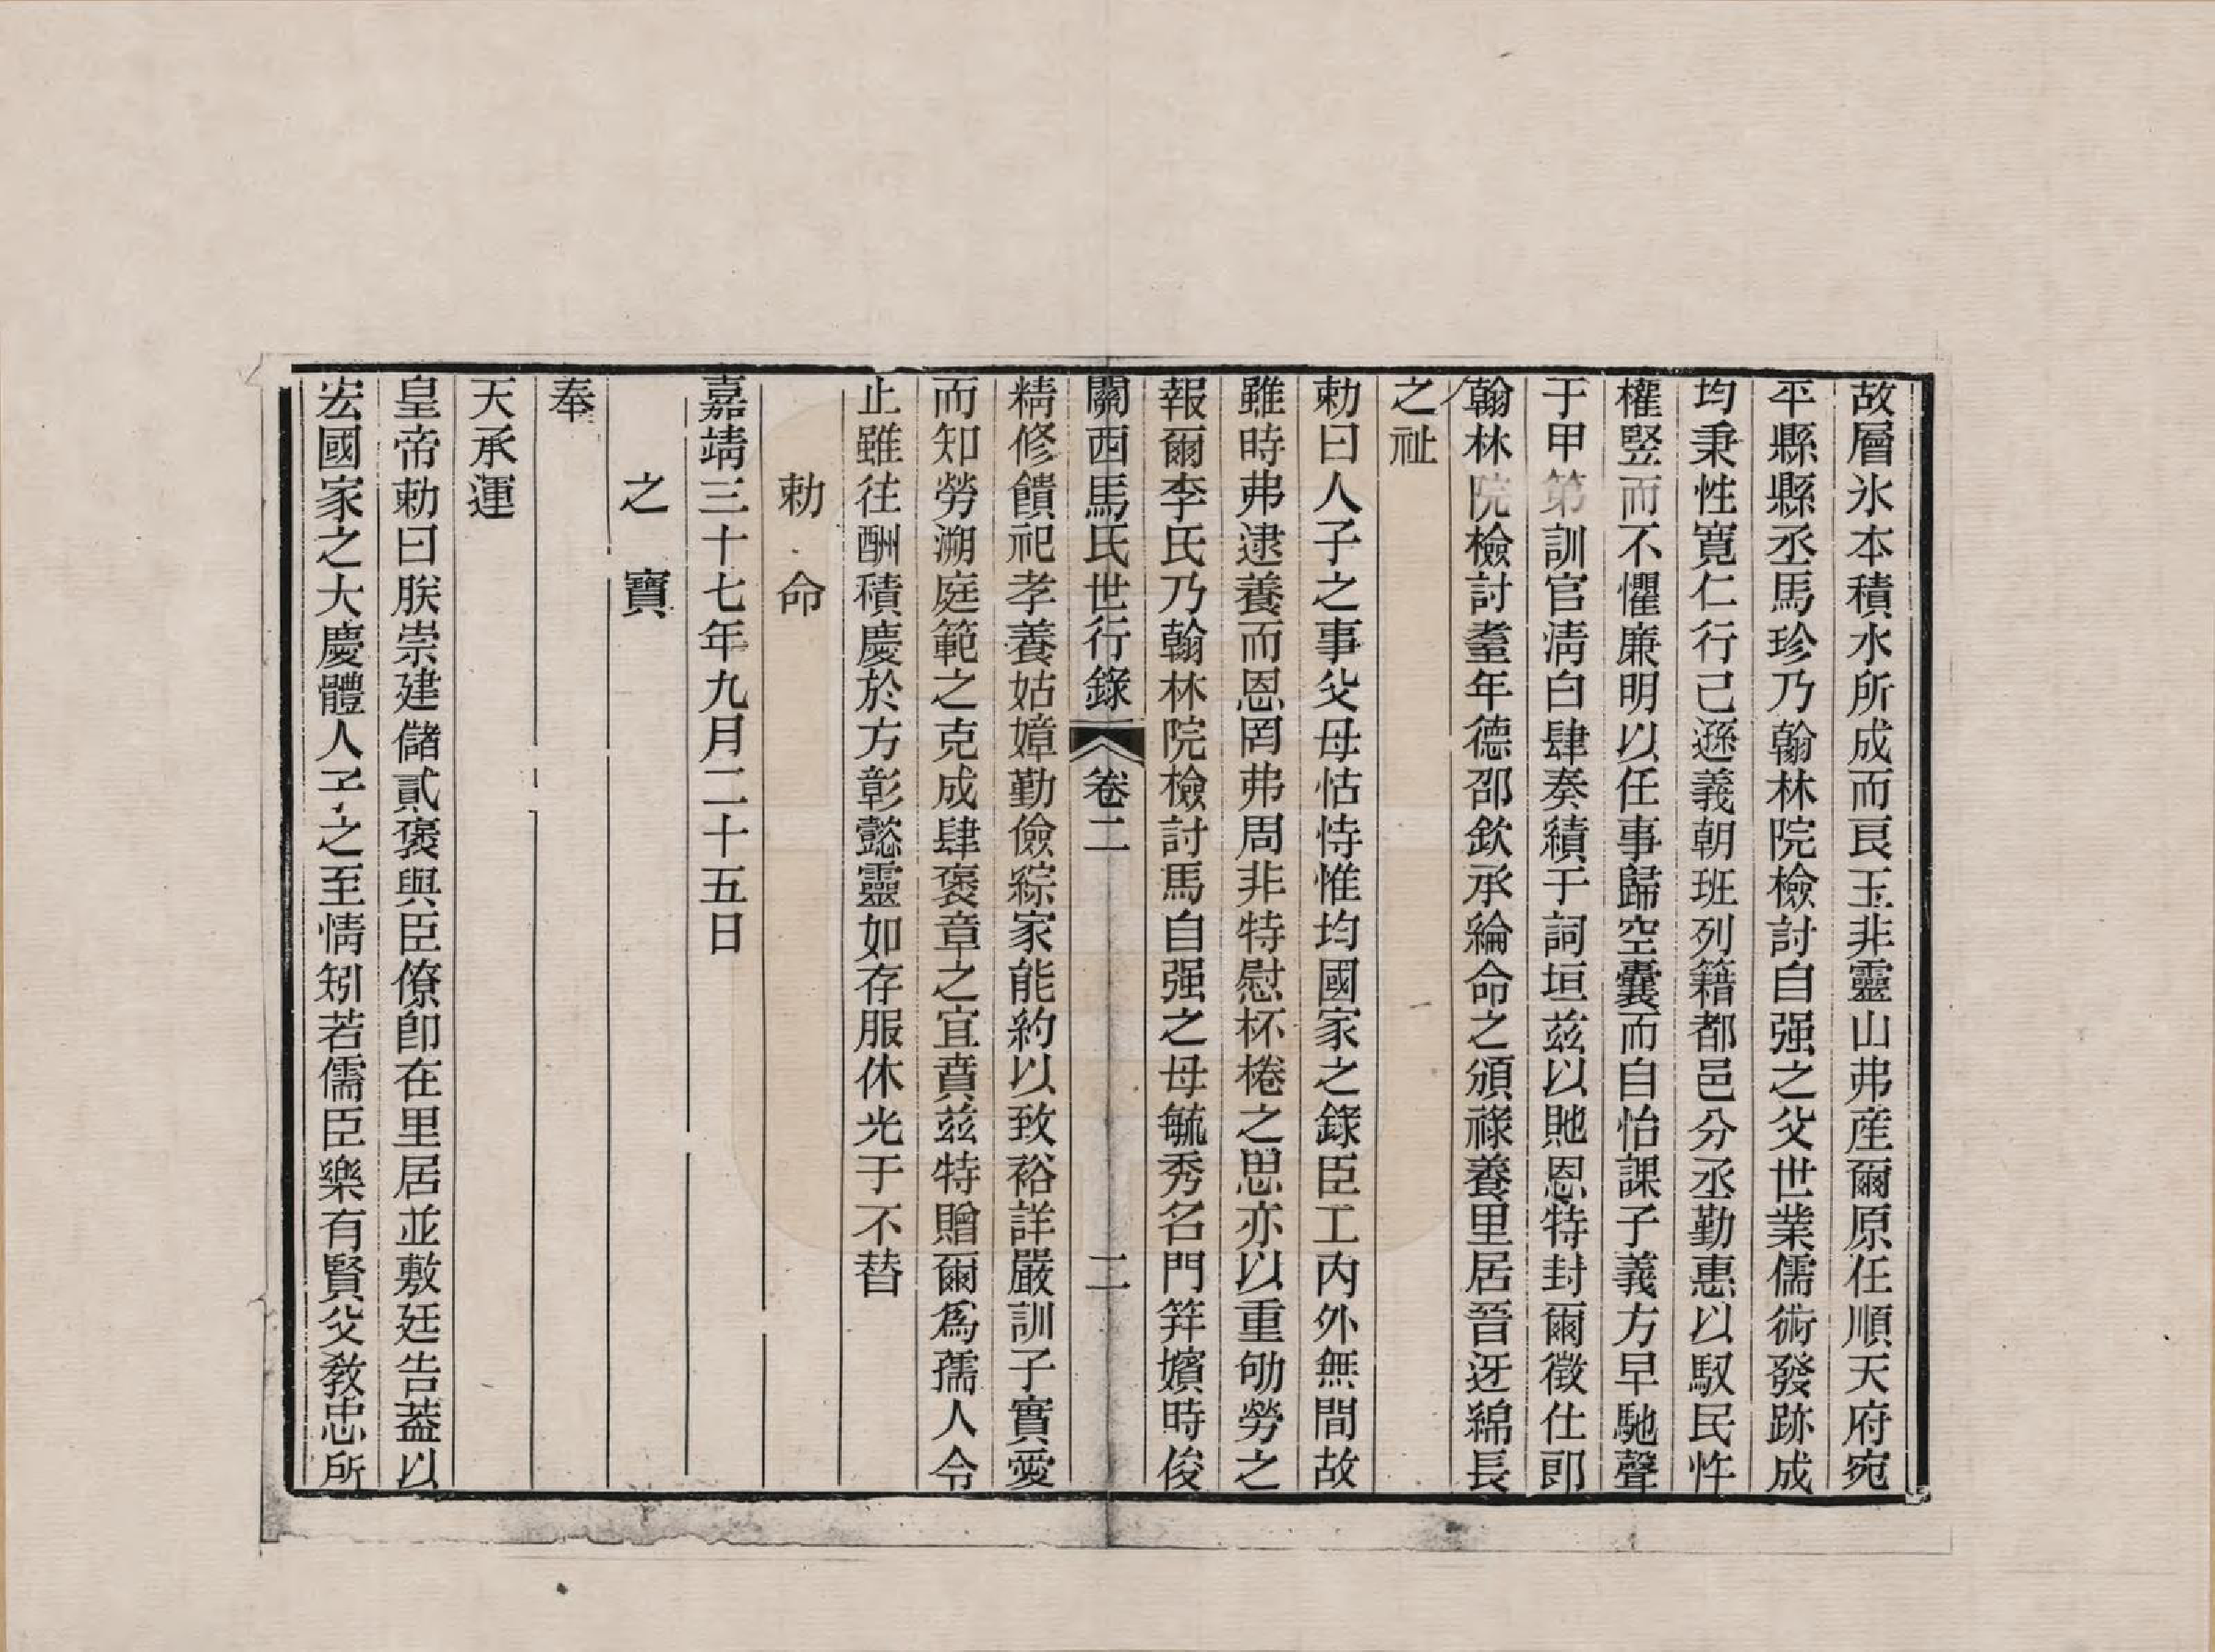 故層氷本積水所成而良玉非靈山弗産爾原任順天府宛
平縣縣丞馬珍乃翰林院檢討自强之父世業儒術發跡成
均秉性寛仁行己遜義朝班列籍都邑分丞勤惠以馭民忤
權竪而不懼廉明以任事歸空囊而自怡課子義方早馳聲
于甲第訓官淸白肆奏績于詞垣兹以貤恩特封爾徵仕郎
翰林院檢討耋年德邵欽承綸命之頒祿養里居晉迓綿長
之祉
勅曰人子之事父母怙恃惟均國家之錄臣工内外無間故
雖時弗逮養而恩罔弗周非特慰杯棬之思亦以重劬勞之
報爾李氏乃翰林院檢討馬自强之母毓秀名門笄嬪時俊
關西馬氏世行錄 卷二 二
精修饋祀孝養姑嫜勤儉綜家能約以致裕詳嚴訓子實愛
而知勞溯庭範之克成肆褒章之宜賁兹特贈爾爲孺人令
止雖往酬積慶於方彰懿靈如存服休光于不替
勅 命
嘉靖三十七年九月二十五日
之 寶
奉
天承運
皇帝勅曰朕崇建儲貳褒與臣僚卽在里居並敷廷告葢以
宏國家之大慶體人子之至情矧若儒臣樂有賢父敎忠所